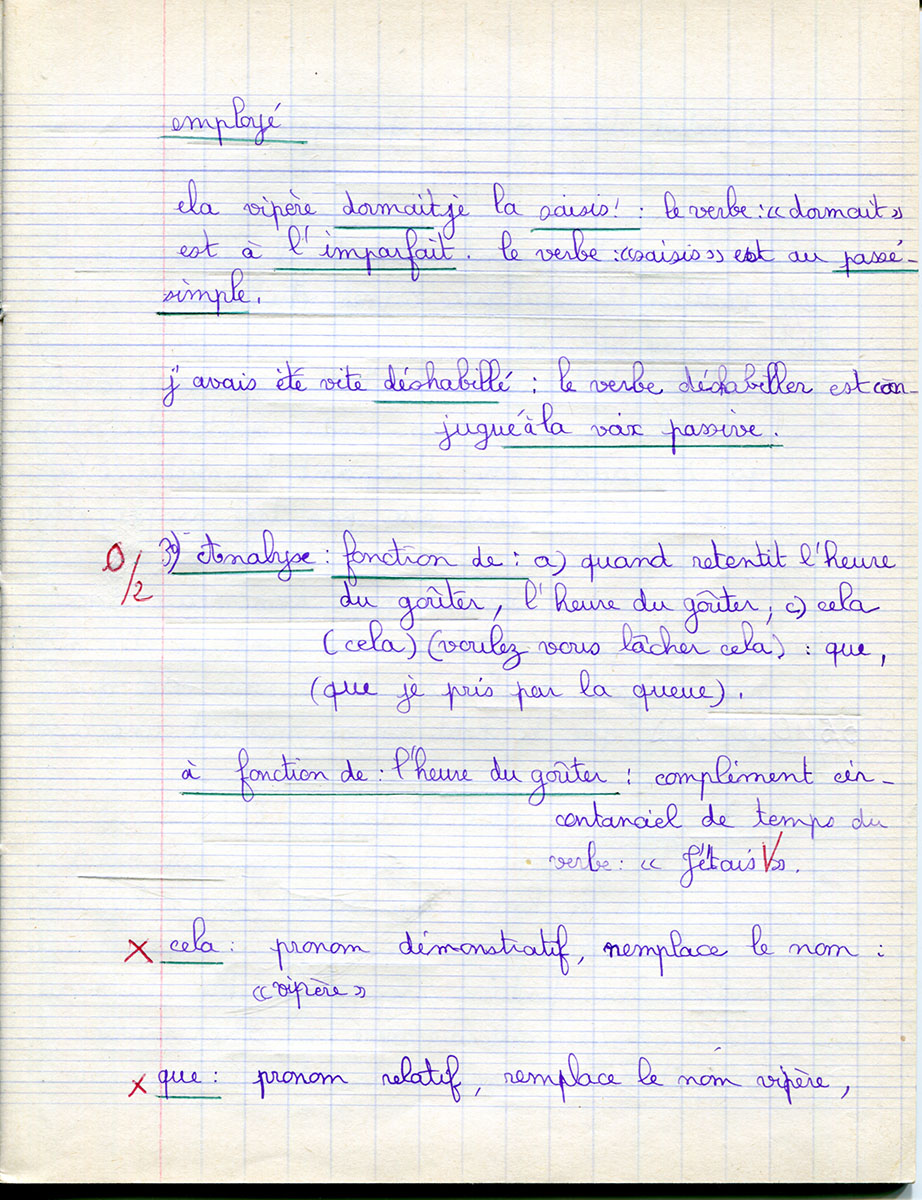 employé
la vipère dormait je la saisis! : le verbe : «dormait»
est à l'imparfait. le verbe : «saisis» est au passé-
simple.
j'avais été vite déshabillé : le verbe déshabiller est con-
jugué à la voix passive.
0/2 3°) Analyse : fonction de : a) quand retentit l'heure
du goûter, l'heure du goûter, c) cela
(cela) (voulez vous lâcher cela) : que,
(que je pris par la queue).
à fonction de : l'heure du goûter : complément cir-
contanciel de temps du
verbe : « j'étais ».
x cela : pronom démonstratif, remplace le nom :
«vipère»
x que : pronom relatif, remplace le nom vipère,